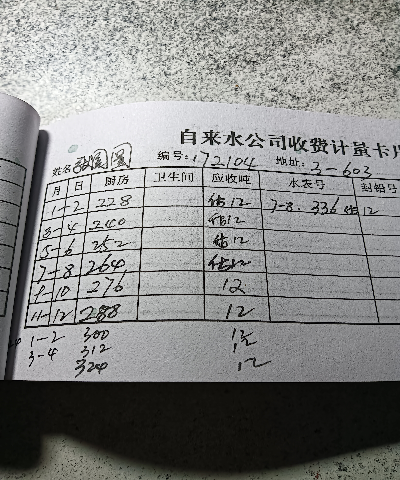 自来水公司收费计量卡片
姓名 圆圆 编号: 172104 地址: 3-603
月 日 厨房 卫生间 应收吨 水表号 封铅号
1-2 228 估12 7-8. 336 估12
3-4 240 估12
5-6 252 估12
7-8 264 估12
9-10 276 12
11-12 288 12
1-2 300 12
3-4 312 12
324 12